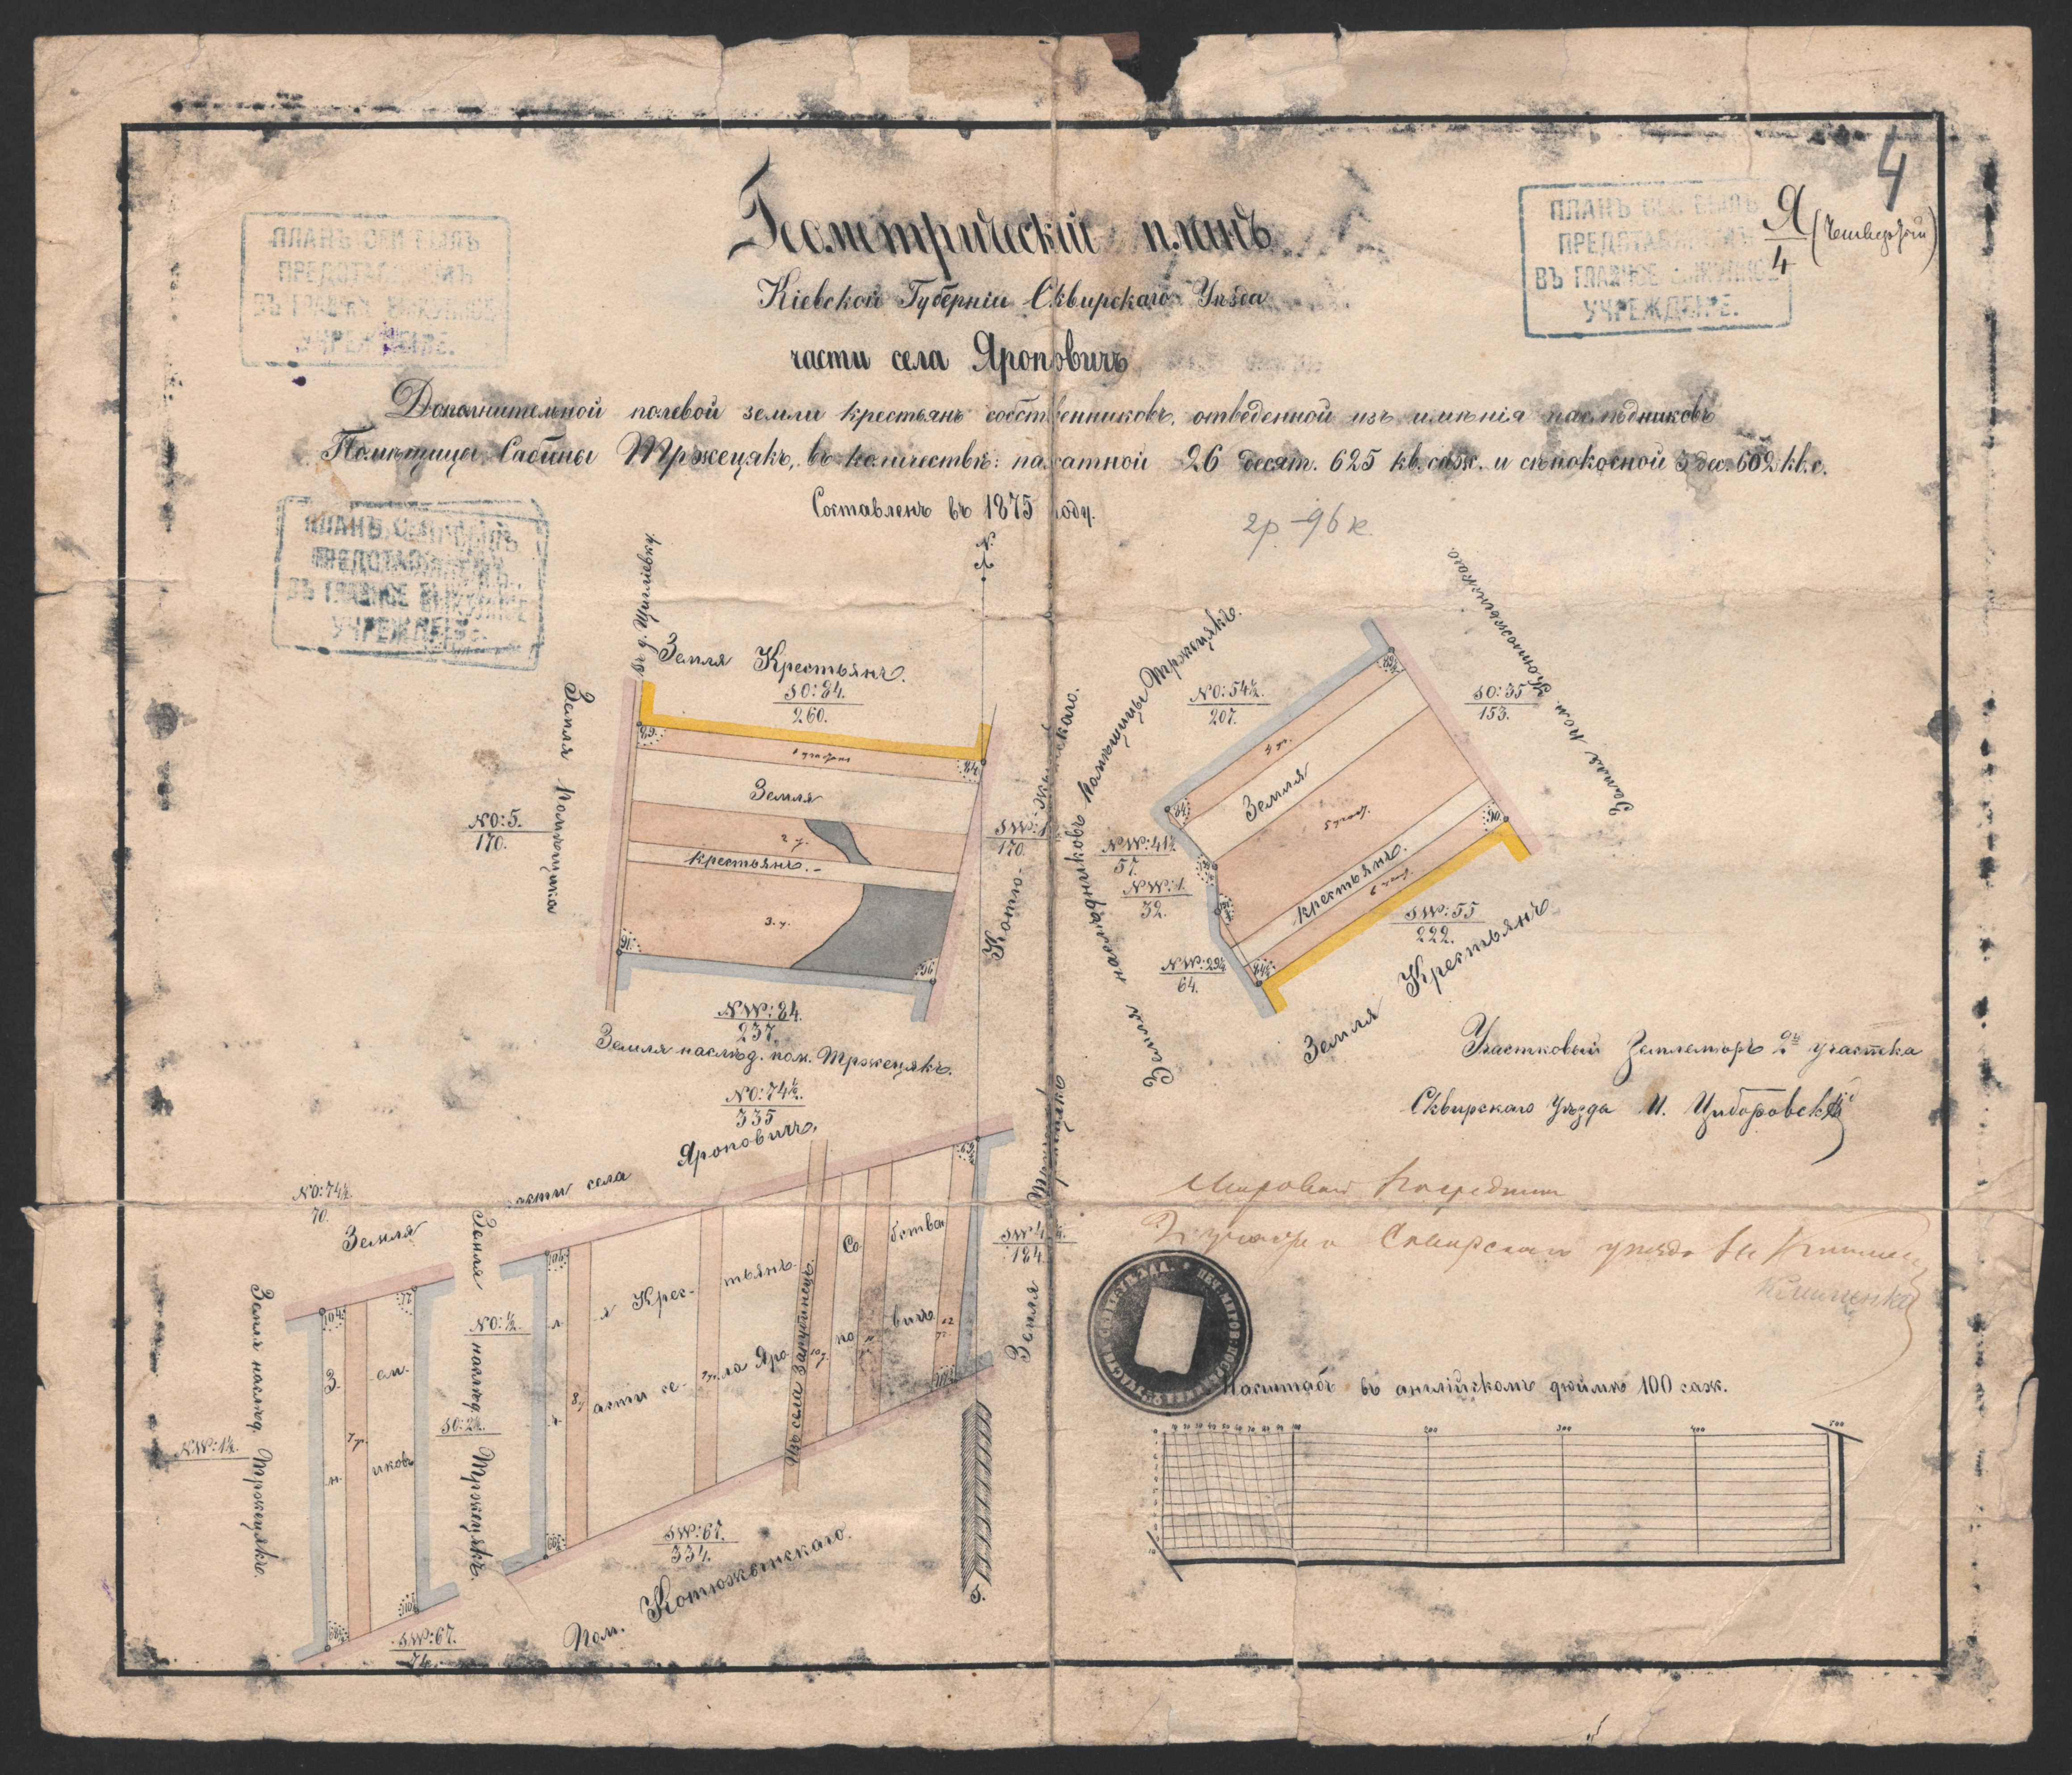 4
Я/4 (Четвертый)
ПЛАНЪ СЕЙ БЫЛЪ
ПРЕДСТАВЛЕНЪ
ВЪ ГЛАВНОЕ ВЫКУПНОЕ
УЧРЕЖДЕНІЕ.
ПЛАНЪ СЕЙ БЫЛЪ
ПРЕДСТАВЛЕНЪ
ВЪ ГЛАВНОЕ ВЫКУПНОЕ
УЧРЕЖДЕНІЕ.
Геометрическій планъ
Кіевской Губерніи Сквирскаго Уѣзда
части села Яроповичъ
Дополнительной полевой земли крестьянъ собственниковъ, отведенной изъ имѣнія наслѣдниковъ
Помѣщицы Сабины Тржецякъ, въ количествѣ: пахатной 26 десят. 625 кв. саж. и сѣнокосной 3 дес. 602 кв. с.
Составленъ въ 1875 году.
2р - 96 к.
ПЛАНЪ СЕЙ БЫЛЪ
ПРЕДСТАВЛЕНЪ
ВЪ ГЛАВНОЕ ВЫКУПНОЕ
УЧРЕЖДЕНІЕ.
N.
Земля Крестьянъ.
SO: 84.
260.
Земля помѣщика
Котюжынскаго.
NO: 5.
170.
89.
84.
1 участокъ
Земля
2 у.
крестьянъ.
3. у.
91.
96
SW:
170.
NW: 84.
237.
Земля наслѣд. пом. Тржецякъ.
Земля наслѣдниковъ помѣщицы Тржецякъ.
Земля пом. Котюжынскаго.
NO: 54½.
207.
SO: 35
153.
4 уч.
Земля
5
крестьянъ.
90.
NW: 41½
57.
NW: 1.
32.
NW: 29½
64.
SW: 55
222.
Земля Крестьянъ
Участковый Землемѣръ 2го участка
Сквирскаго Уѣзда И. Циборовскій
Мировой Посредникъ
2 участка Сквирскаго уѣзда
Клименко
NO: 74½.
335
части села Яроповичъ,
NO: 74½.
70.
Земля
Земля наслѣд. Тржецякъ.
NW: 1½.
104.
З. ем.
н. иковъ
7 у.
SW: 67.
74.
Земля наслѣд. Тржецякъ.
NO: ½.
SO: 2½.
я Крес- тьянъ Со бства
8 у
асти се- ла Яро- по вичъ
Изъ села Зарубинецъ.
10 у.
11
12 уч.
SW: 67.
334.
Пом. Котюжынскаго.
SW 4
184
Земля Тржецякъ
S.
Масштабъ въ англійскомъ дюймѣ 100 саж.
0 10 20 30 40 50 60 70 80 90 100 200 300 400 500
10